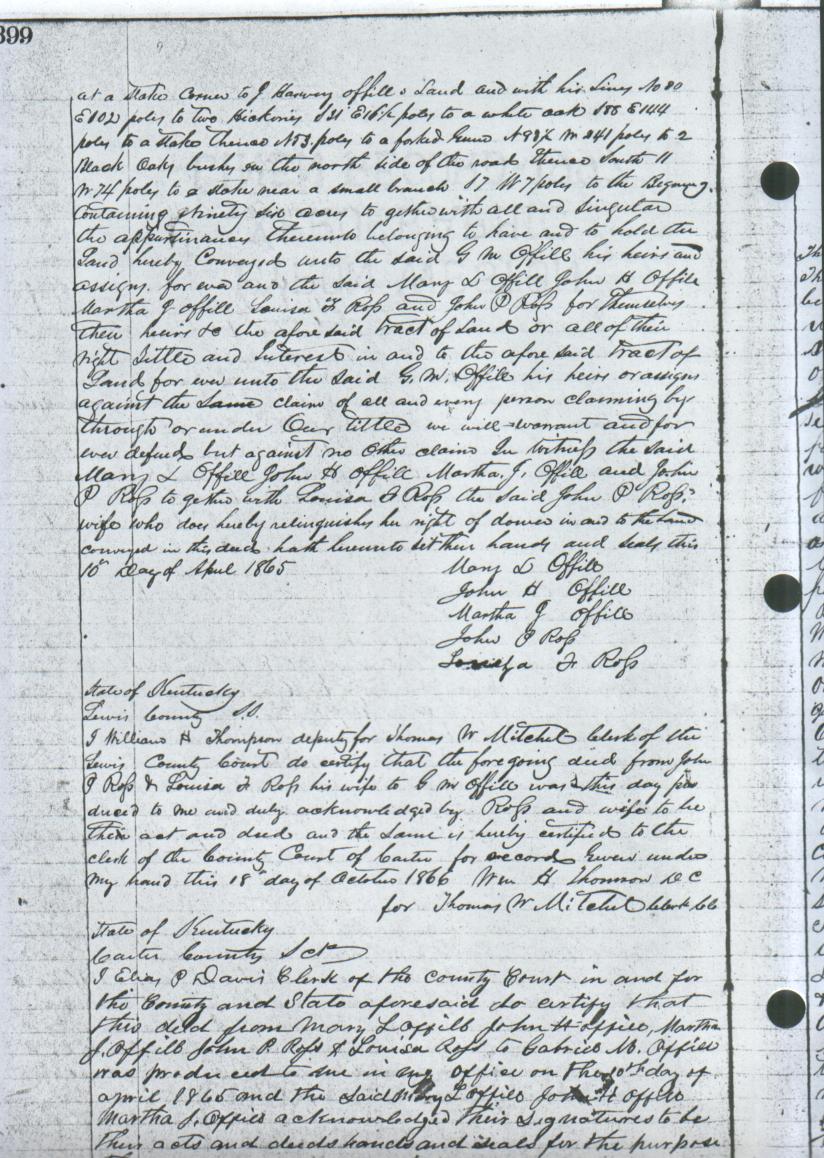 399
at a Stake Corner to J Harvey Offill s Land and with his Lines No 80
E102 poles to two Hickories S21 E16½ poles to a white oak S88 E144
poles to a Stake Thence N53 poles to a forked Gum N 89½ W 241 poles to 2
Black Oaks bushes on the north side of the road Thence South 11
W 74 poles to a Stake near a small branch S7 W 7 poles to the Begining.
Containing Ninety Six acres to gether with all and singular
the appurtinances Thereunto belonging to have and to hold the
Land hereby Conveyed unto the said G M Offill his heirs and
assigns for ever and the Said Mary L Offill John H Offill
Martha J Offill Louisa F Ross and John P Ross for themselves
their heirs &c the afore said tract of Land or all of their
right tittle and Interest in and to the afore said tract of
Land for ever unto the Said G. M. Offill his heirs or assigns
against the Same claim of all and every person claiming by
through or under Our tittle we will warrant and for
ever defend but against no other claim In witness the said
Mary L Offill John H Offill Martha. J. Offill and John
P Ross to gether with Louisa F Ross the Said John P Ross,
wife who does hereby relinquishes her right of dower in and to the Land
conveyed in this deed hath hereunto set their hands and seals this
10th Day of April 1865
Mary L Offill
John H Offill
Martha J Offill
John P Ross
Louiza F Ross
State of Kentucky
Lewis County SS.
I William H Thompson deputy for Thomas W Mitchel Clerk of the
Lewis County Court do certify that the foregoing deed from John
P Ross & Louisa F Ross his wife to G M Offill was this day pro
duced to me and duly acknowledged by Ross and wife to be
their act and deed and the same is hereby certified to the
clerk of the County Court of Carter for record Given under
my hand this 18th day of October 1866 Wm H Thomson D C
for Thomas W Mitchel Clerk
State of Kentucky
Carter County Sct
I Elias P Davis Clerk of the county Court in and for
the County and State aforesaid do certify that
this deed from Mary L Offill John H Offill, Martha
J. Offill John P. Ross & Louisa Ross to Gabriel M. Offill
was produced to me in my office on the 10th day of
April 1865 and the Said Mary L Offill John H Offill
Martha J. Offill acknowledged their signatures to be
their acts and deeds hands and seals for the purpose